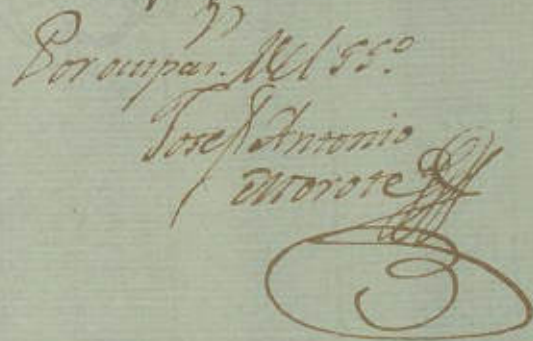 Por ocupaz.n del SS.º
Josef Antonio
Morote